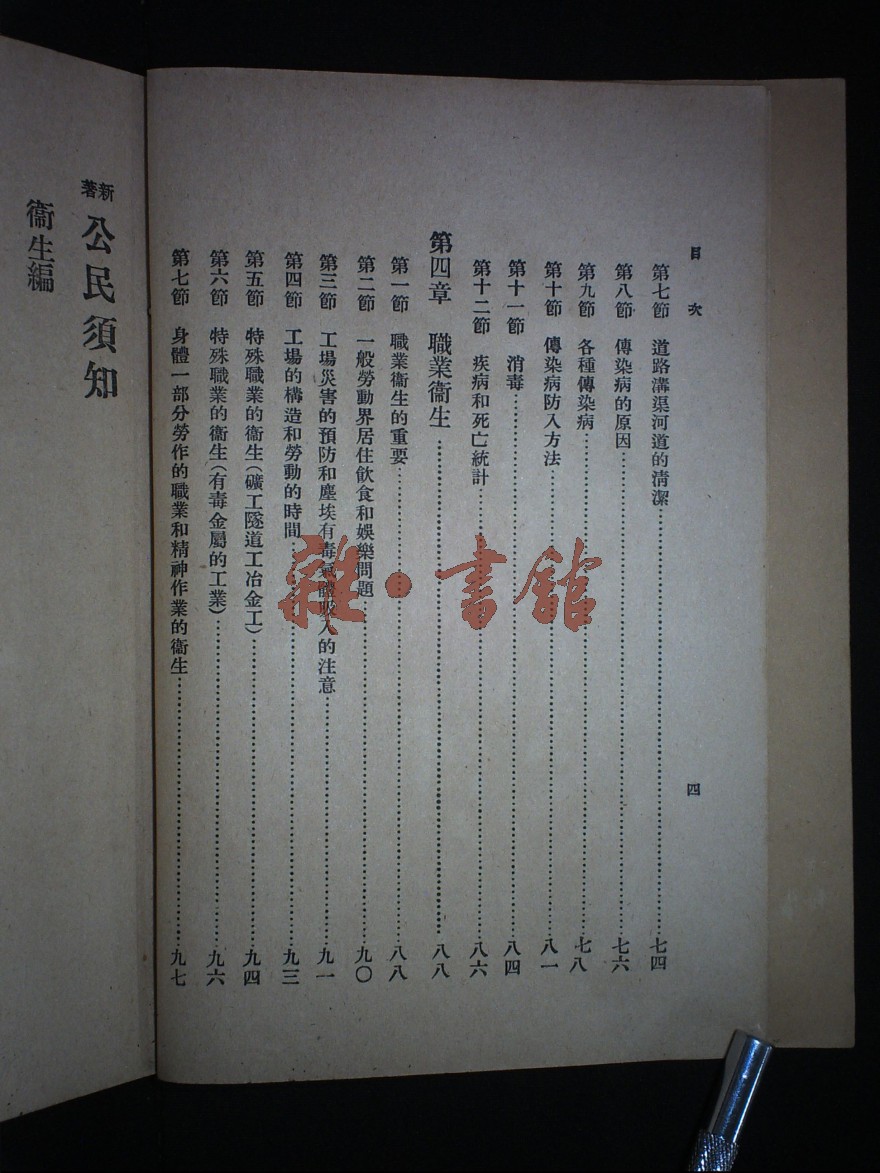 目次
四
第七節 道路溝渠河道的清潔……七四
第八節 傳染病的原因……七六
第九節 各種傳染病……七八
第十節 傳染病防入方法……八一
第十一節 消毒……八四
第十二節 疾病和死亡統計……八六
第四章 職業衞生……八八
第一節 職業衞生的重要……八八
第二節 一般勞動界居住飲食和娛樂問題……九〇
第三節 工場災害的預防和塵埃有毒氣體吸入的注意……九一
第四節 工場的構造和勞動的時間……九三
第五節 特殊職業的衞生(礦工隧道工冶金工)……九四
第六節 特殊職業的衞生(有毒金屬的工業)……九六
第七節 身體一部分勞作的職業和精神作業的衞生……九七
新著 公民須知
衞生編
雜·書館